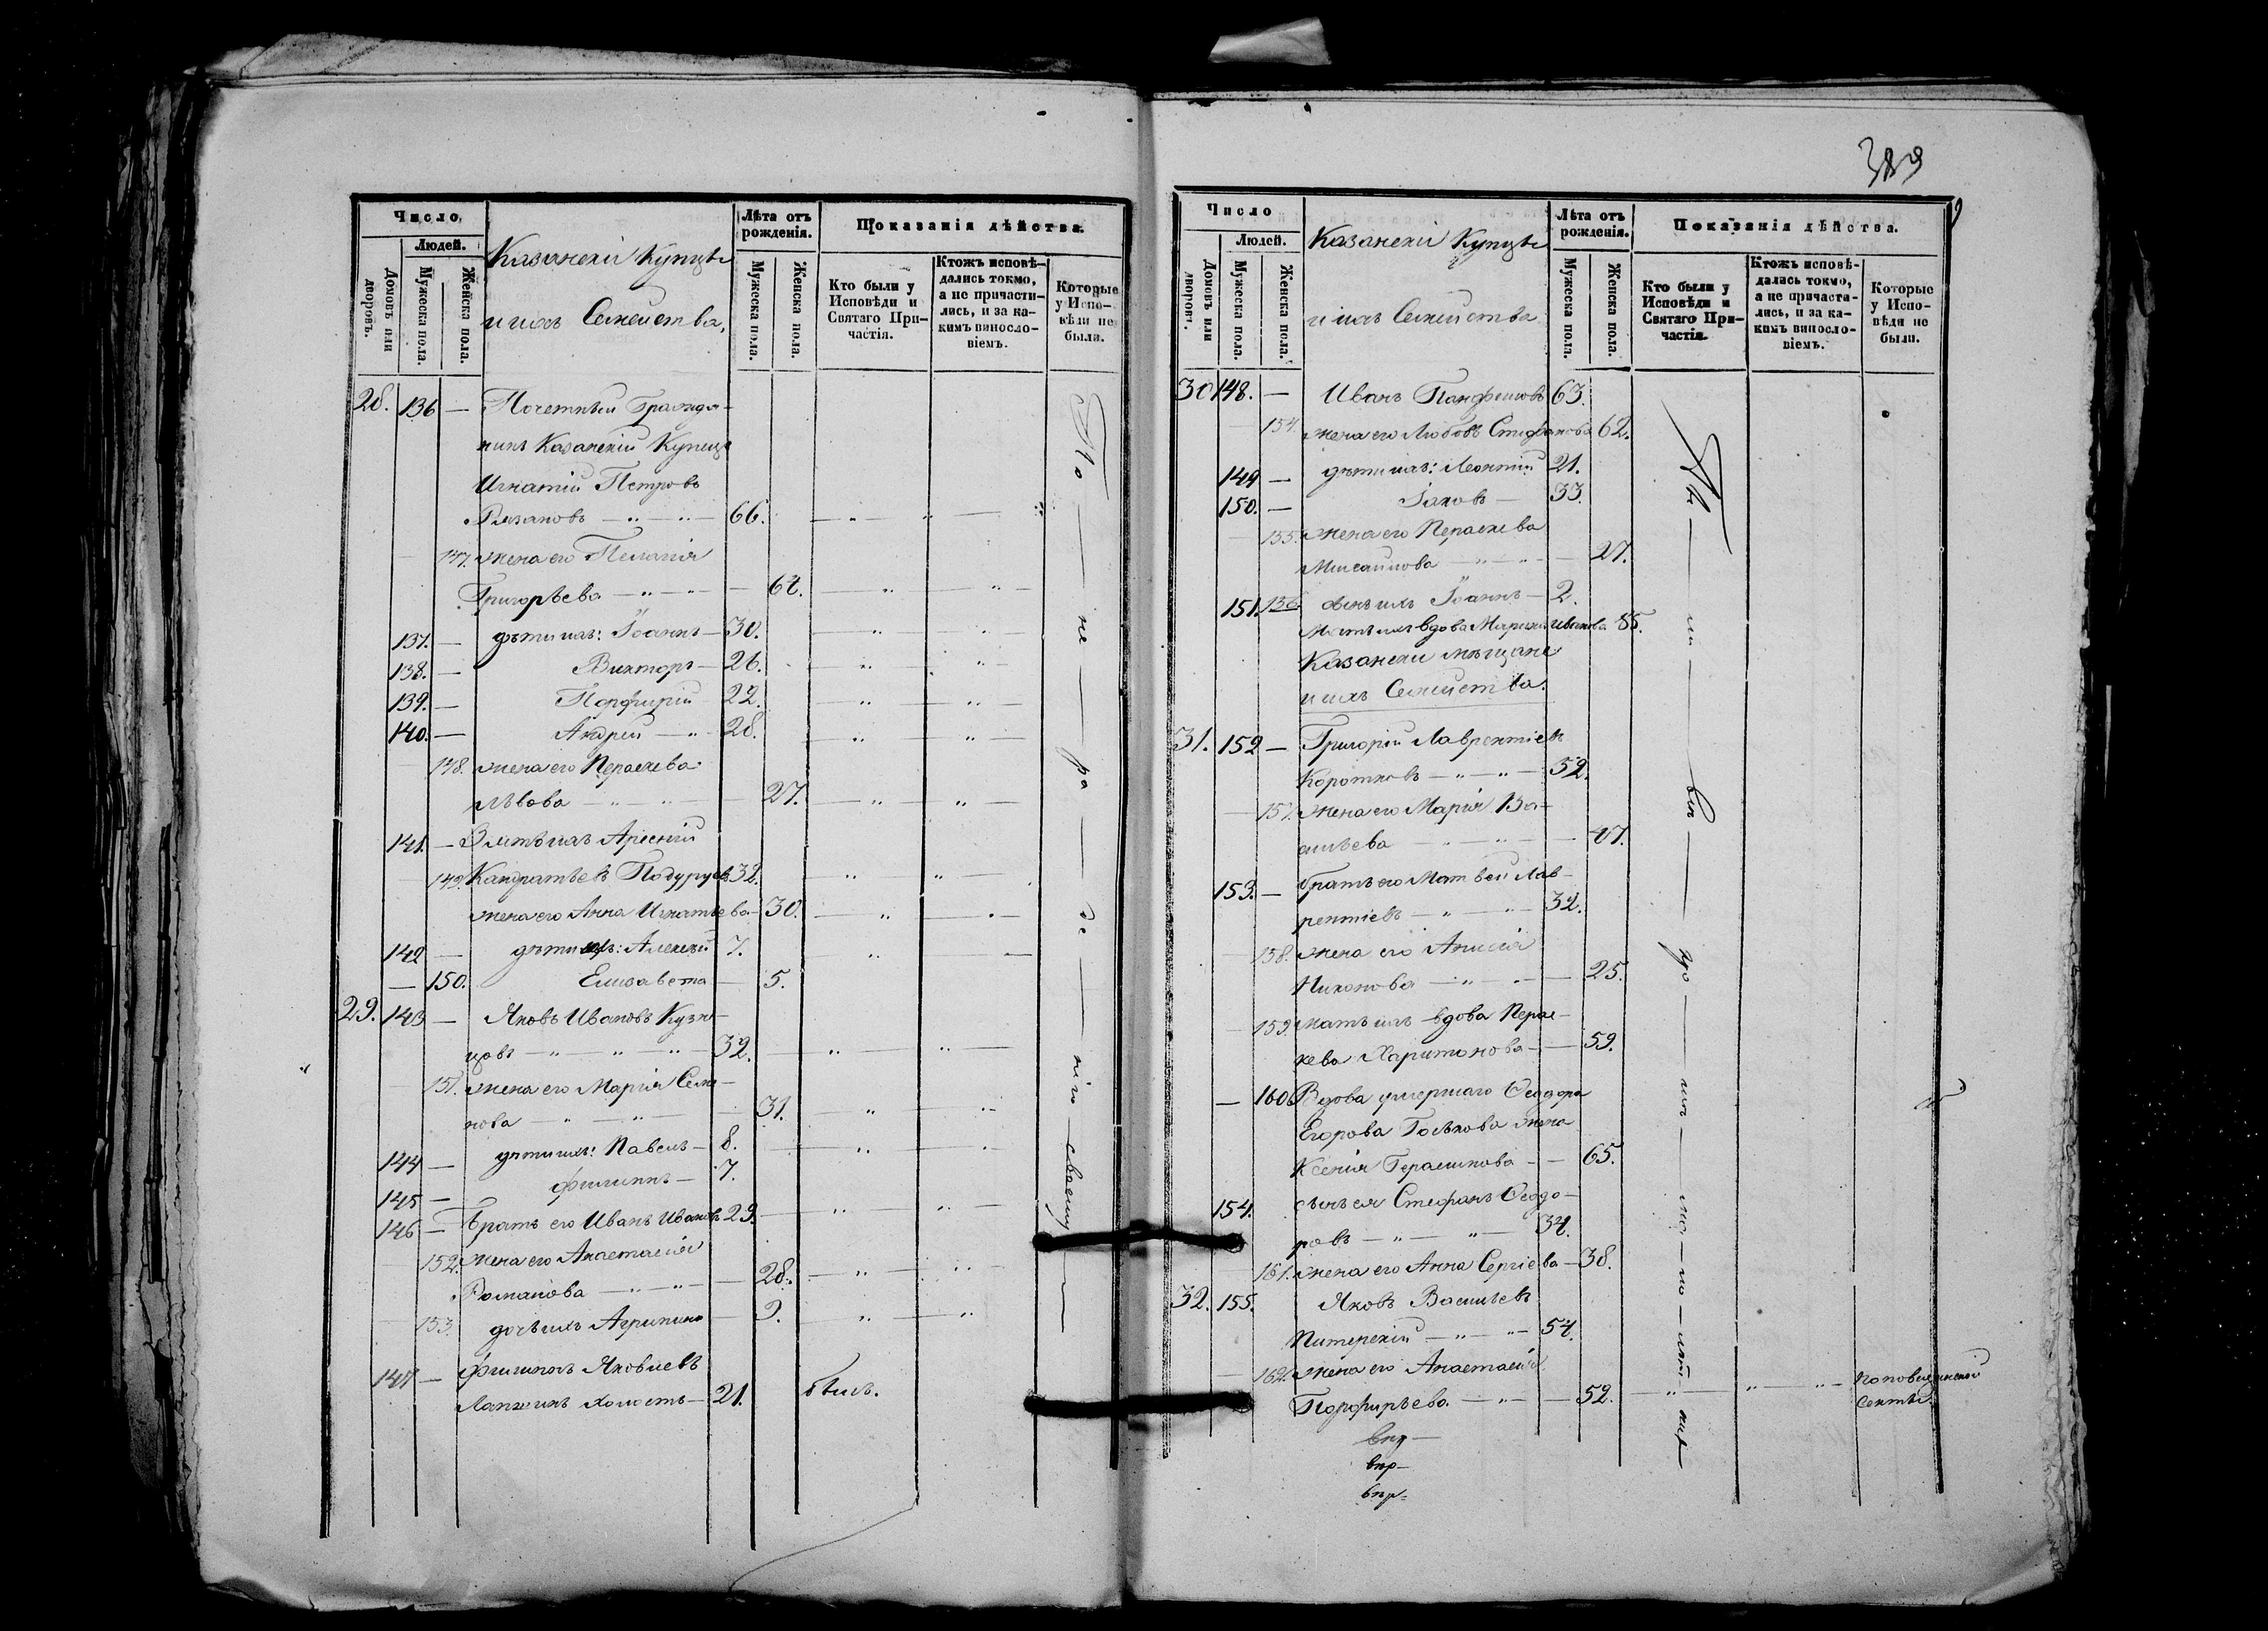 389
Число
Людей.
Домовъ или дворовъ.
Мужеска пола.
Женска пола.
Казанскіи Купцы
и ихъ Семейства,
Лѣта отъ рожденія.
Мужеска пола.
Женска пола.
Показанія дѣйства.
Кто были у Исповѣди и Святаго Причастія.
Ктожъ исповѣдались токмо, а не причастились, и за какимъ винословіемъ.
Которые у Исповѣди не были.
28. 136 — Почетный Гражда-
нинъ Казанскій Купецъ
Игнатій Петровъ
Рязановъ — 66.
147. жена его Пелагія
Григорьева — 62.
137. — дѣти ихъ: Іоаннъ — 30.
138. — Викторъ — 26.
139. — Порфирій 22.
140. — Андрей — 28.
148. жена его Параскева
Львова — 27.
141. — Зять ихъ Арсеній
149. Кандратьевъ 32.
жена его Анна Игнатьева — 30.
142 — дѣти ихъ: Алексѣй 7.
— 150. Елизавета — 5.
29. 143 — Яковъ Ивановъ Кузне-
цовъ — 32.
151. жена его Марія Семе-
нова — 31.
144 — дѣти ихъ: Павелъ — 8.
145 — Филиппъ — 7.
146 — Братъ его Иванъ Ивановъ 29.
152. жена его Анастасія
Романова — 28.
153. дочь ихъ Агрипина — 9.
147 — Филиппъ Яковлевъ
холостъ — 21. былъ.
По — не — ра — де — нію — своему
Число
Людей.
Домовъ или дворовъ.
Мужеска пола.
Женска пола.
Казанскіи Купцы
и ихъ Семейства
Лѣта отъ рожденія.
Мужеска пола.
Женска пола.
Показанія дѣйства.
Кто были у Исповѣди и Святаго Причастія.
Ктожъ исповѣдались токмо, а не причастились, и за какимъ винословіемъ.
Которые у Исповѣди не были.
30 148. — Иванъ Панфиловъ 63.
154. жена его Любовь Стефанова 62.
149 — дѣти ихъ: Леонтій 21.
150. — Іаковъ — 33.
155. жена его Параскева
27.
151. 156 сынъ ихъ Іоаннъ — 2.
Мать ихъ вдова Иванова 85.
Казанскіи мѣщане
и ихъ Семейства.
31. 152 — Григорій Лаврентіевъ
Коротковъ — 52.
157. жена его Марія Ва-
сильева — 47.
153. — братъ его Матвей Лав-
рентіевъ — 32.
158. жена его Анисія
Никонова — 25.
159. мать ихъ вдова Парас-
кева Харитонова — 59.
— 160. Вдова умершаго Ѳеодора
Егорова жена
Ксенія Герасимова — 65.
154. сынъ ея Стефанъ Ѳеодо-
ровъ — 34.
161. жена его Анна Сергіева — 38.
32. 155. Яковъ Васильевъ
Питерскій — 54.
162. жена его Анастасія
Порфирьева — 52. поповщинской
секты.
впр —
впр —
впр —